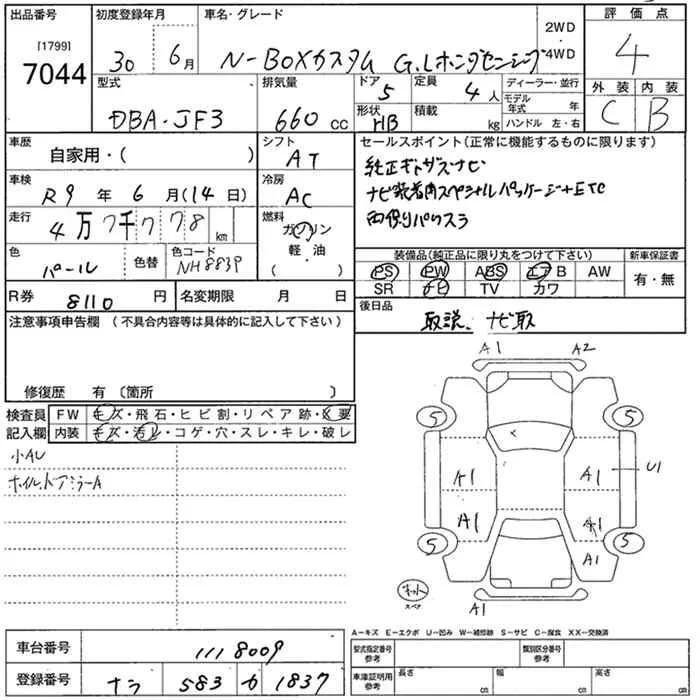 出品番号 初度登録年月 車名・グレード 評価点
[1799]
7044
30年 6月 N-BOXカスタム G.Lホンダセンシング 2WD・4WD 4
型式 排気量 ドア 5 定員 4人 ディーラー・並行 外装 内装
DBA-JF3 660cc 形状 HB 積載 kg モデル年式 年 C B
ハンドル 左・右
車歴 シフト セールスポイント(正常に機能するものに限ります)
自家用・( ) AT
車検 冷房
R9年 6月(14日) AC ナビ装着用スペシャルパッケージ+ETC
走行 燃料 両側パワスラ
4万7千778km ガソリン
軽・油
( )
色 色替 色コード 装備品(純正品に限り丸をつけて下さい) 新車保証書
パール NH883P PS PW ABS エアB AW 有・無
SR ナビ TV カワ
R券 8110円 名変期限 月 日 後日品
注意事項申告欄(不具合内容等は具体的に記入して下さい) 取説、ナビ取
修復歴 有〔箇所 〕
検査員 FW キズ・飛石・ヒビ割・リペア跡・X要
記入欄 内装 キズ・汚レ・コゲ・穴・スレ・キレ・破レ
小AU
ホイル、ドアミラーA
A1 A2
5 5
A1 A1 U1
A1
5 5
A1
スペア
A1
A-キズ E-エクボ U-凹み W-補修跡 S-サビ C-腐食 XX-交換済
車台番号 1118009 型式指定番号 参考 類別区分番号 参考
登録番号 ナラ 583 カ 1837 車庫証明用 参考 長さ cm 幅 cm 高さ cm